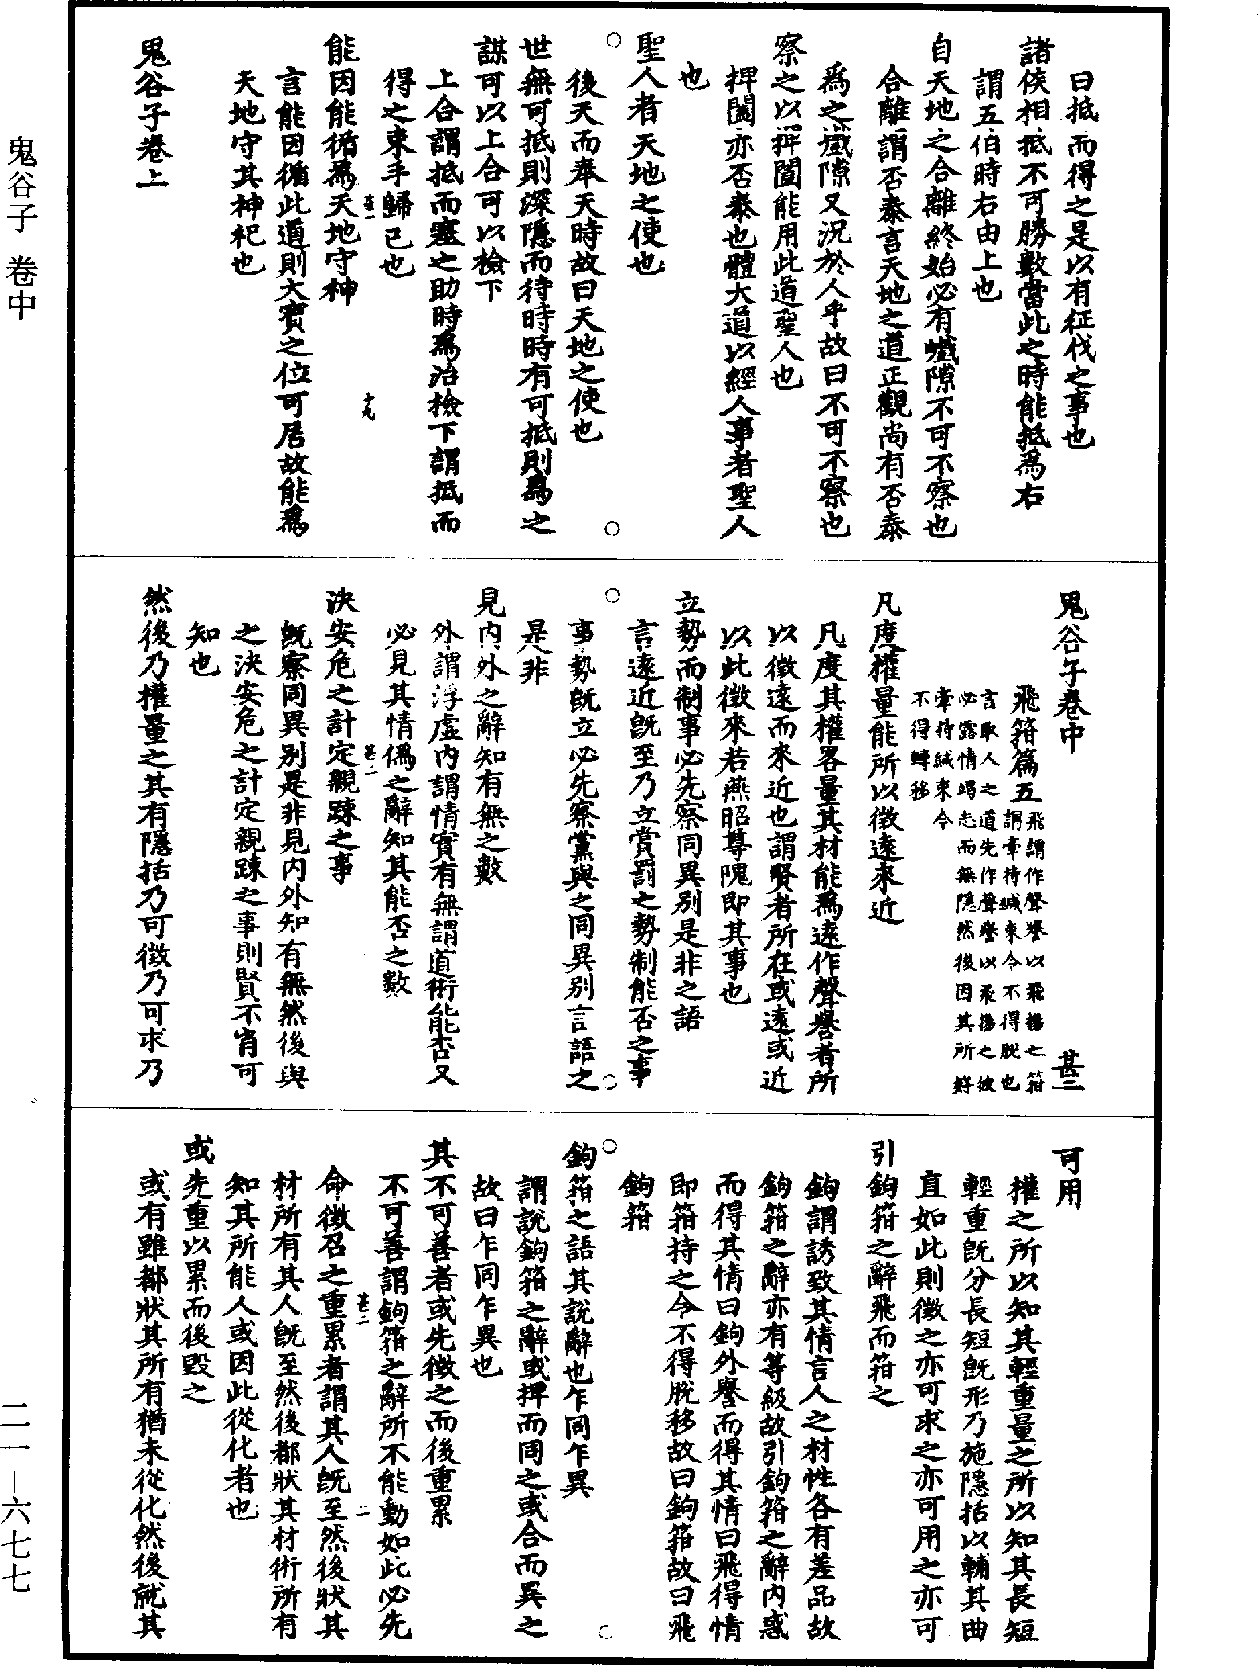 曰抵而得之是以有征伐之事也
諸侯相抵不可勝數當此之時能抵爲右
謂五伯時右由上也
自天地之合離終始必有巇隙不可不察也
合離謂否泰言天地之道正觀尚有否泰
爲之巇隙又況於人乎故曰不可不察也
察之以捭闔能用此道聖人也
捭闔亦否泰也體大道以經人事者聖人
也
聖人者天地之使也
後天而奉天時故曰天地之使也
世無可抵則深隱而待時時有可抵則爲之
謀可以上合可以檢下
上合謂抵而塞之助時爲治檢下謂抵而
得之束手歸己也
能因能循爲天地守神
言能因循此道則大寳之位可居故能爲
天地守其神祀也
鬼谷子卷上
鬼谷子卷中 甚二
飛箝篇五
飛謂作聲譽以飛揚之箝
謂牽持緘束令不得脫也
言取人之道先作聲譽以飛揚之彼
必露情竭志而無隱然後因其所好
牽持緘束令
不得轉移
凡度權量能所以徵遠來近
凡度其權畧量其材能爲遠作聲譽者所
以徵遠而來近也謂賢者所在或遠或近
以此徵來若燕昭尊隗即其事也
立勢而制事必先察同異別是非之語
言遠近旣至乃立賞罰之勢制能否之事
事勢旣立必先察黨與之同異別言語之
是非
見内外之辭知有無之數
外謂浮虛内謂情實有無謂道術能否又
必見其情僞之辭知其能否之數
決安危之計定親踈之事
旣察同異別是非見内外知有無然後與
之決安危之計定親踈之事則賢不肖可
知也
然後乃權量之其有隱括乃可徵乃可求乃
可用
權之所以知其輕重量之所以知其長短
輕重旣分長短旣形乃施隱括以輔其曲
直如此則徵之亦可求之亦可用之亦可
引鉤箝之辭飛而箝之
鉤謂誘致其情言人之材性各有差品故
鉤箝之辭亦有等級故引鉤箝之辭内惑
而得其情曰鉤外譽而得其情曰飛得情
即箝持之令不得脫移故曰鉤箝故曰飛
鉤箝
鉤箝之語其說辭也乍同乍異
謂說鉤箝之辭或捭而同之或合而異之
故曰乍同乍異也
其不可善者或先徵之而後重累
不可善謂鉤箝之辭所不能動如此必先
命徵召之重累者謂其人旣至然後狀其
材所有其人旣至然後都狀其材術所有
知其所能人或因此從化者也
或先重以累而後毀之
或有雖都狀其所有猶未從化然後就其
鬼谷子 卷中
二一—六七七